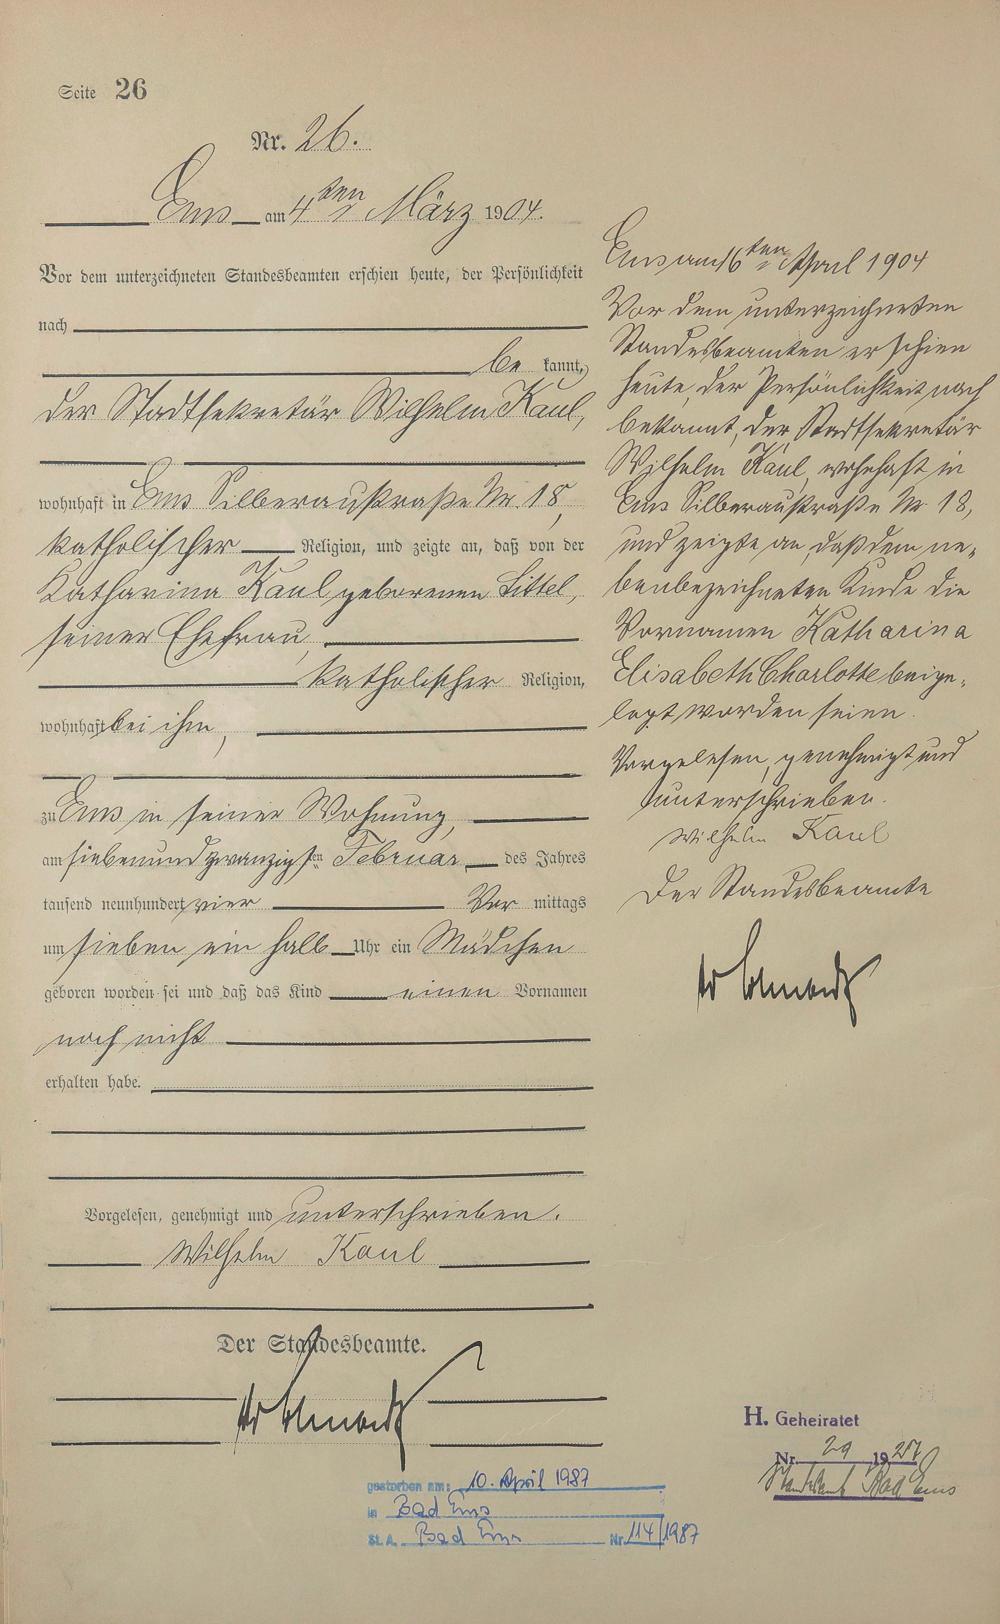 Seite 26
Nr. 26.
Ems am 4ten März 1904.
Vor dem unterzeichneten Standesbeamten erschien heute, der Persönlichkeit
nach
be kannt,
der Stadtsekretär Wilhelm Kaul,
wohnhaft in Ems Silberaustraße Nr. 18,
katholischer Religion, und zeigte an, daß von der
Katharina Kaul geborenen Littel,
seiner Ehefrau,
katholischer Religion,
wohnhaft bei ihm,
zu Ems in seiner Wohnung,
am siebenundzwanzigsten Februar des Jahres
tausend neunhundert vier Vor mittags
um sieben ein halb Uhr ein Mädchen
geboren worden sei und daß das Kind einen Vornamen
noch nicht
erhalten habe.
Vorgelesen, genehmigt und unterschrieben.
Wilhelm Kaul
Der Standesbeamte.
gestorben am: 10. April 1987
in Bad Ems
St.A. Bad Ems Nr. 114/1987
Ems am 16ten April 1904
Vor dem unterzeichneten
Standesbeamten erschien
heute, der Persönlichkeit nach
bekannt, der Stadtsekretär
Wilhelm Kaul, wohnhaft in
Ems Silberaustraße Nr. 18,
und zeigte an, daß dem ne-
benbezeichneten Kinde die
Vornamen Katharina
Elisabeth Charlotte beige-
legt worden seien.
Vorgelesen, genehmigt und
unterschrieben.
Wilhelm Kaul
Der Standesbeamte
H. Geheiratet
Nr. 29 19
Standesamt Bad Ems